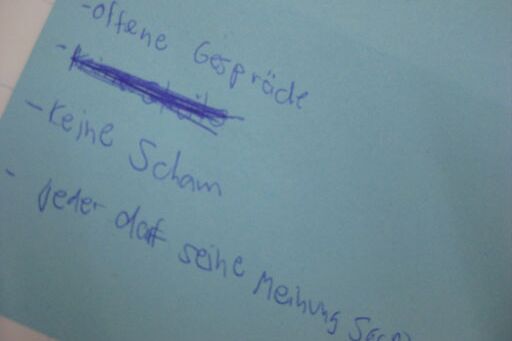 -offene Gespräche
-
-keine Scham
- jeder darf seine Meinung